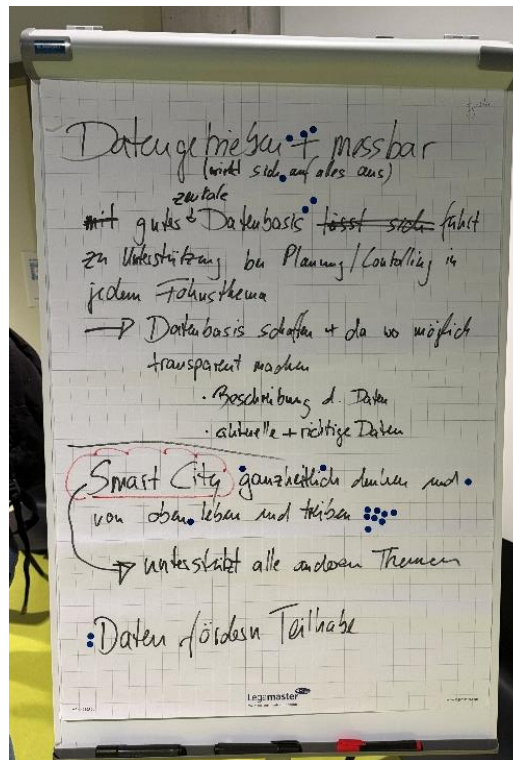 Datengetrieben + messbar
(wirkt sich auf alles aus)
zentrale
mit gutes Datenbasis lässt sich führt
zu Unterstützung bei Planung/Controlling in
jedem Fokusthema
→ Datenbasis schaffen + da wo möglich
transparent machen
· Beschreibung d. Daten
· aktuelle + richtige Daten
Smart City ganzheitlich denken und
von oben leben und treiben
→ unterstützt alle anderen Themen
Daten fördern Teilhabe
Legamaster